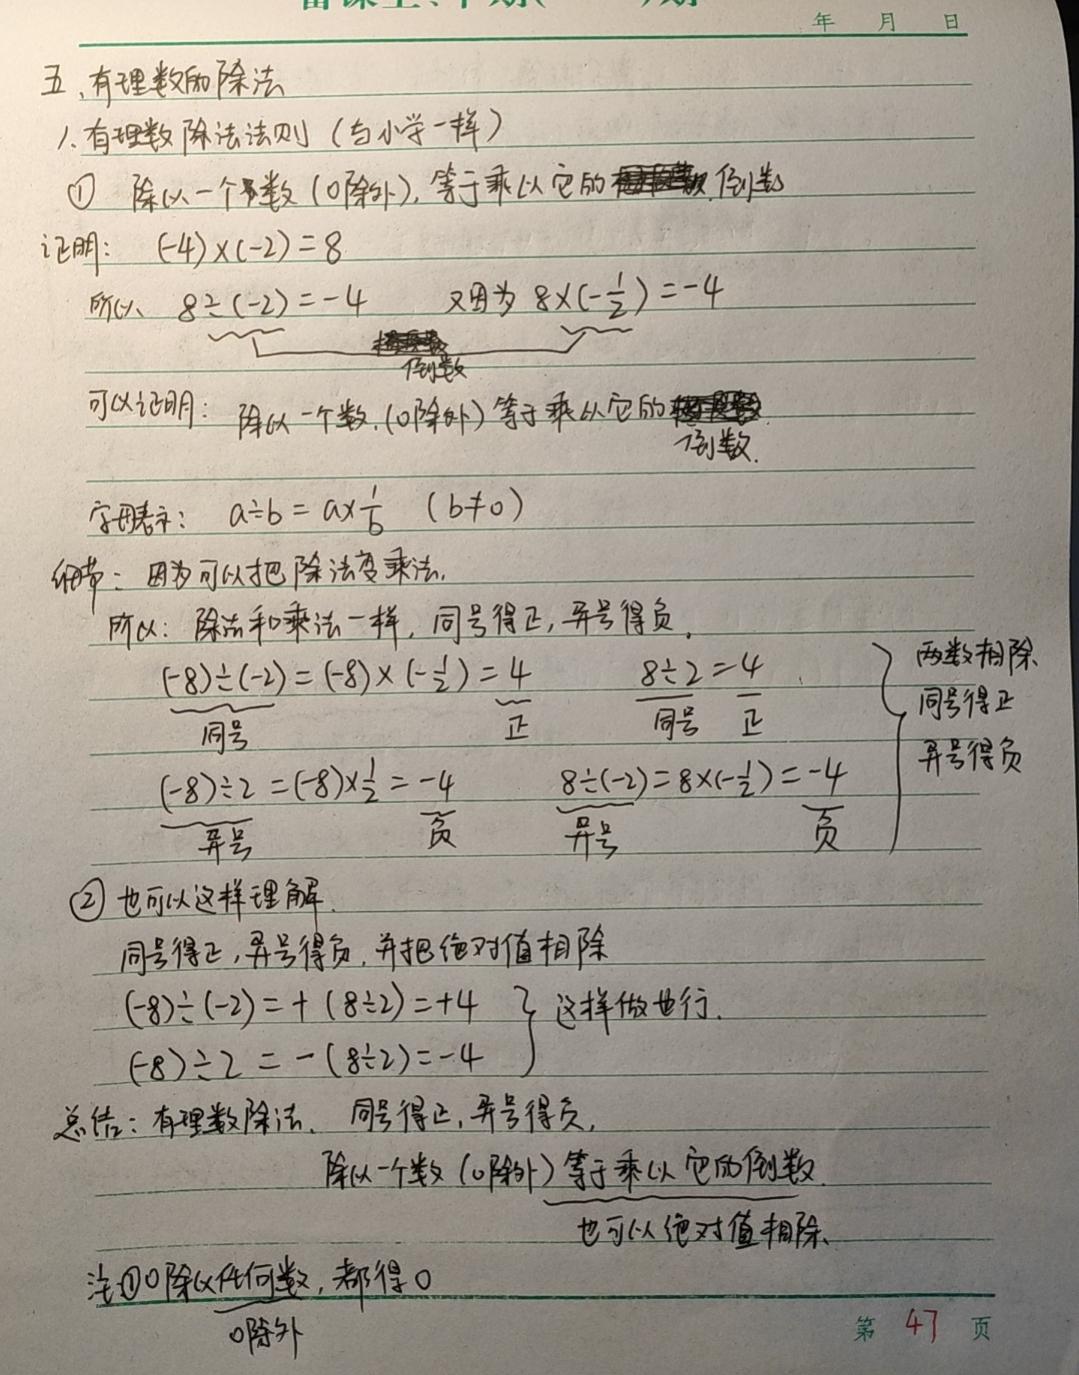 年 月 日
五、有理数的除法
1.有理数除法法则(与小学一样)
① 除以一个数(0除外),等于乘以它的倒数
证明: (-4)×(-2)=8
所以 8÷(-2)=-4 又因为 8×(-1/2)=-4
倒数
可以证明: 除以一个数(0除外)等于乘以它的
倒数.
字母表示: a÷b=a×1/b (b≠0)
细节: 因为可以把除法变乘法.
所以: 除法和乘法一样, 同号得正, 异号得负.
(-8)÷(-2)=(-8)×(-1/2)=4 8÷2=4
同号 正 同号 正
两数相除
同号得正
异号得负
(-8)÷2=(-8)×1/2=-4 8÷(-2)=8×(-1/2)=-4
异号 负 异号 负
② 也可以这样理解.
同号得正, 异号得负, 并把绝对值相除
(-8)÷(-2)=+(8÷2)=+4
这样做也行.
(-8)÷2=-(8÷2)=-4
总结: 有理数除法. 同号得正, 异号得负,
除以一个数(0除外)等于乘以它的倒数.
也可以绝对值相除.
注①0除以任何数, 都得0
0除外
第 47 页